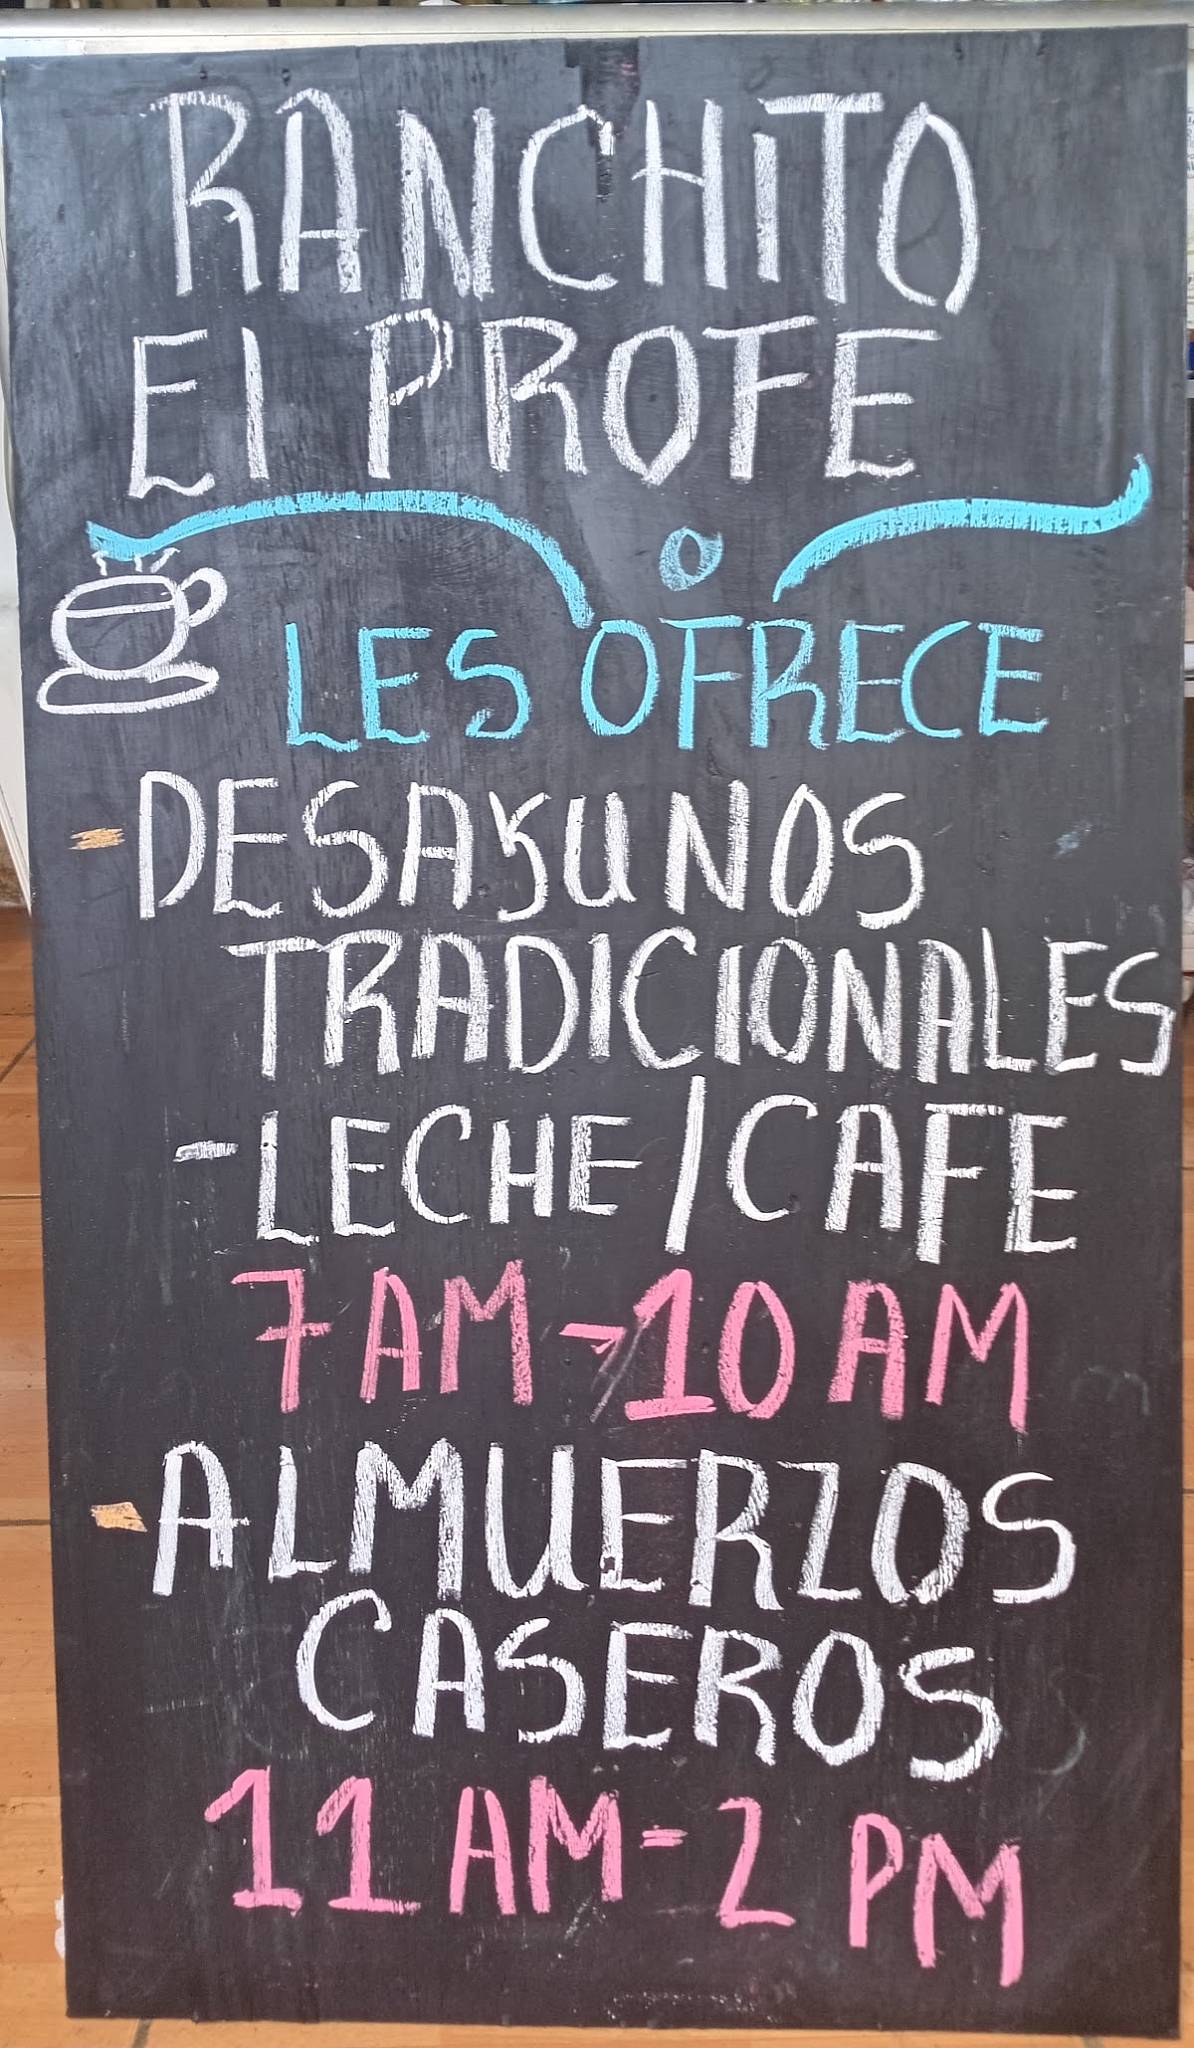 RANCHITO
El PROFE
LES OFRECE
- DESAYUNOS
TRADICIONALES
- LECHE / CAFE
7 AM - 10 AM
- ALMUERZOS
CASEROS
11 AM = 2 PM